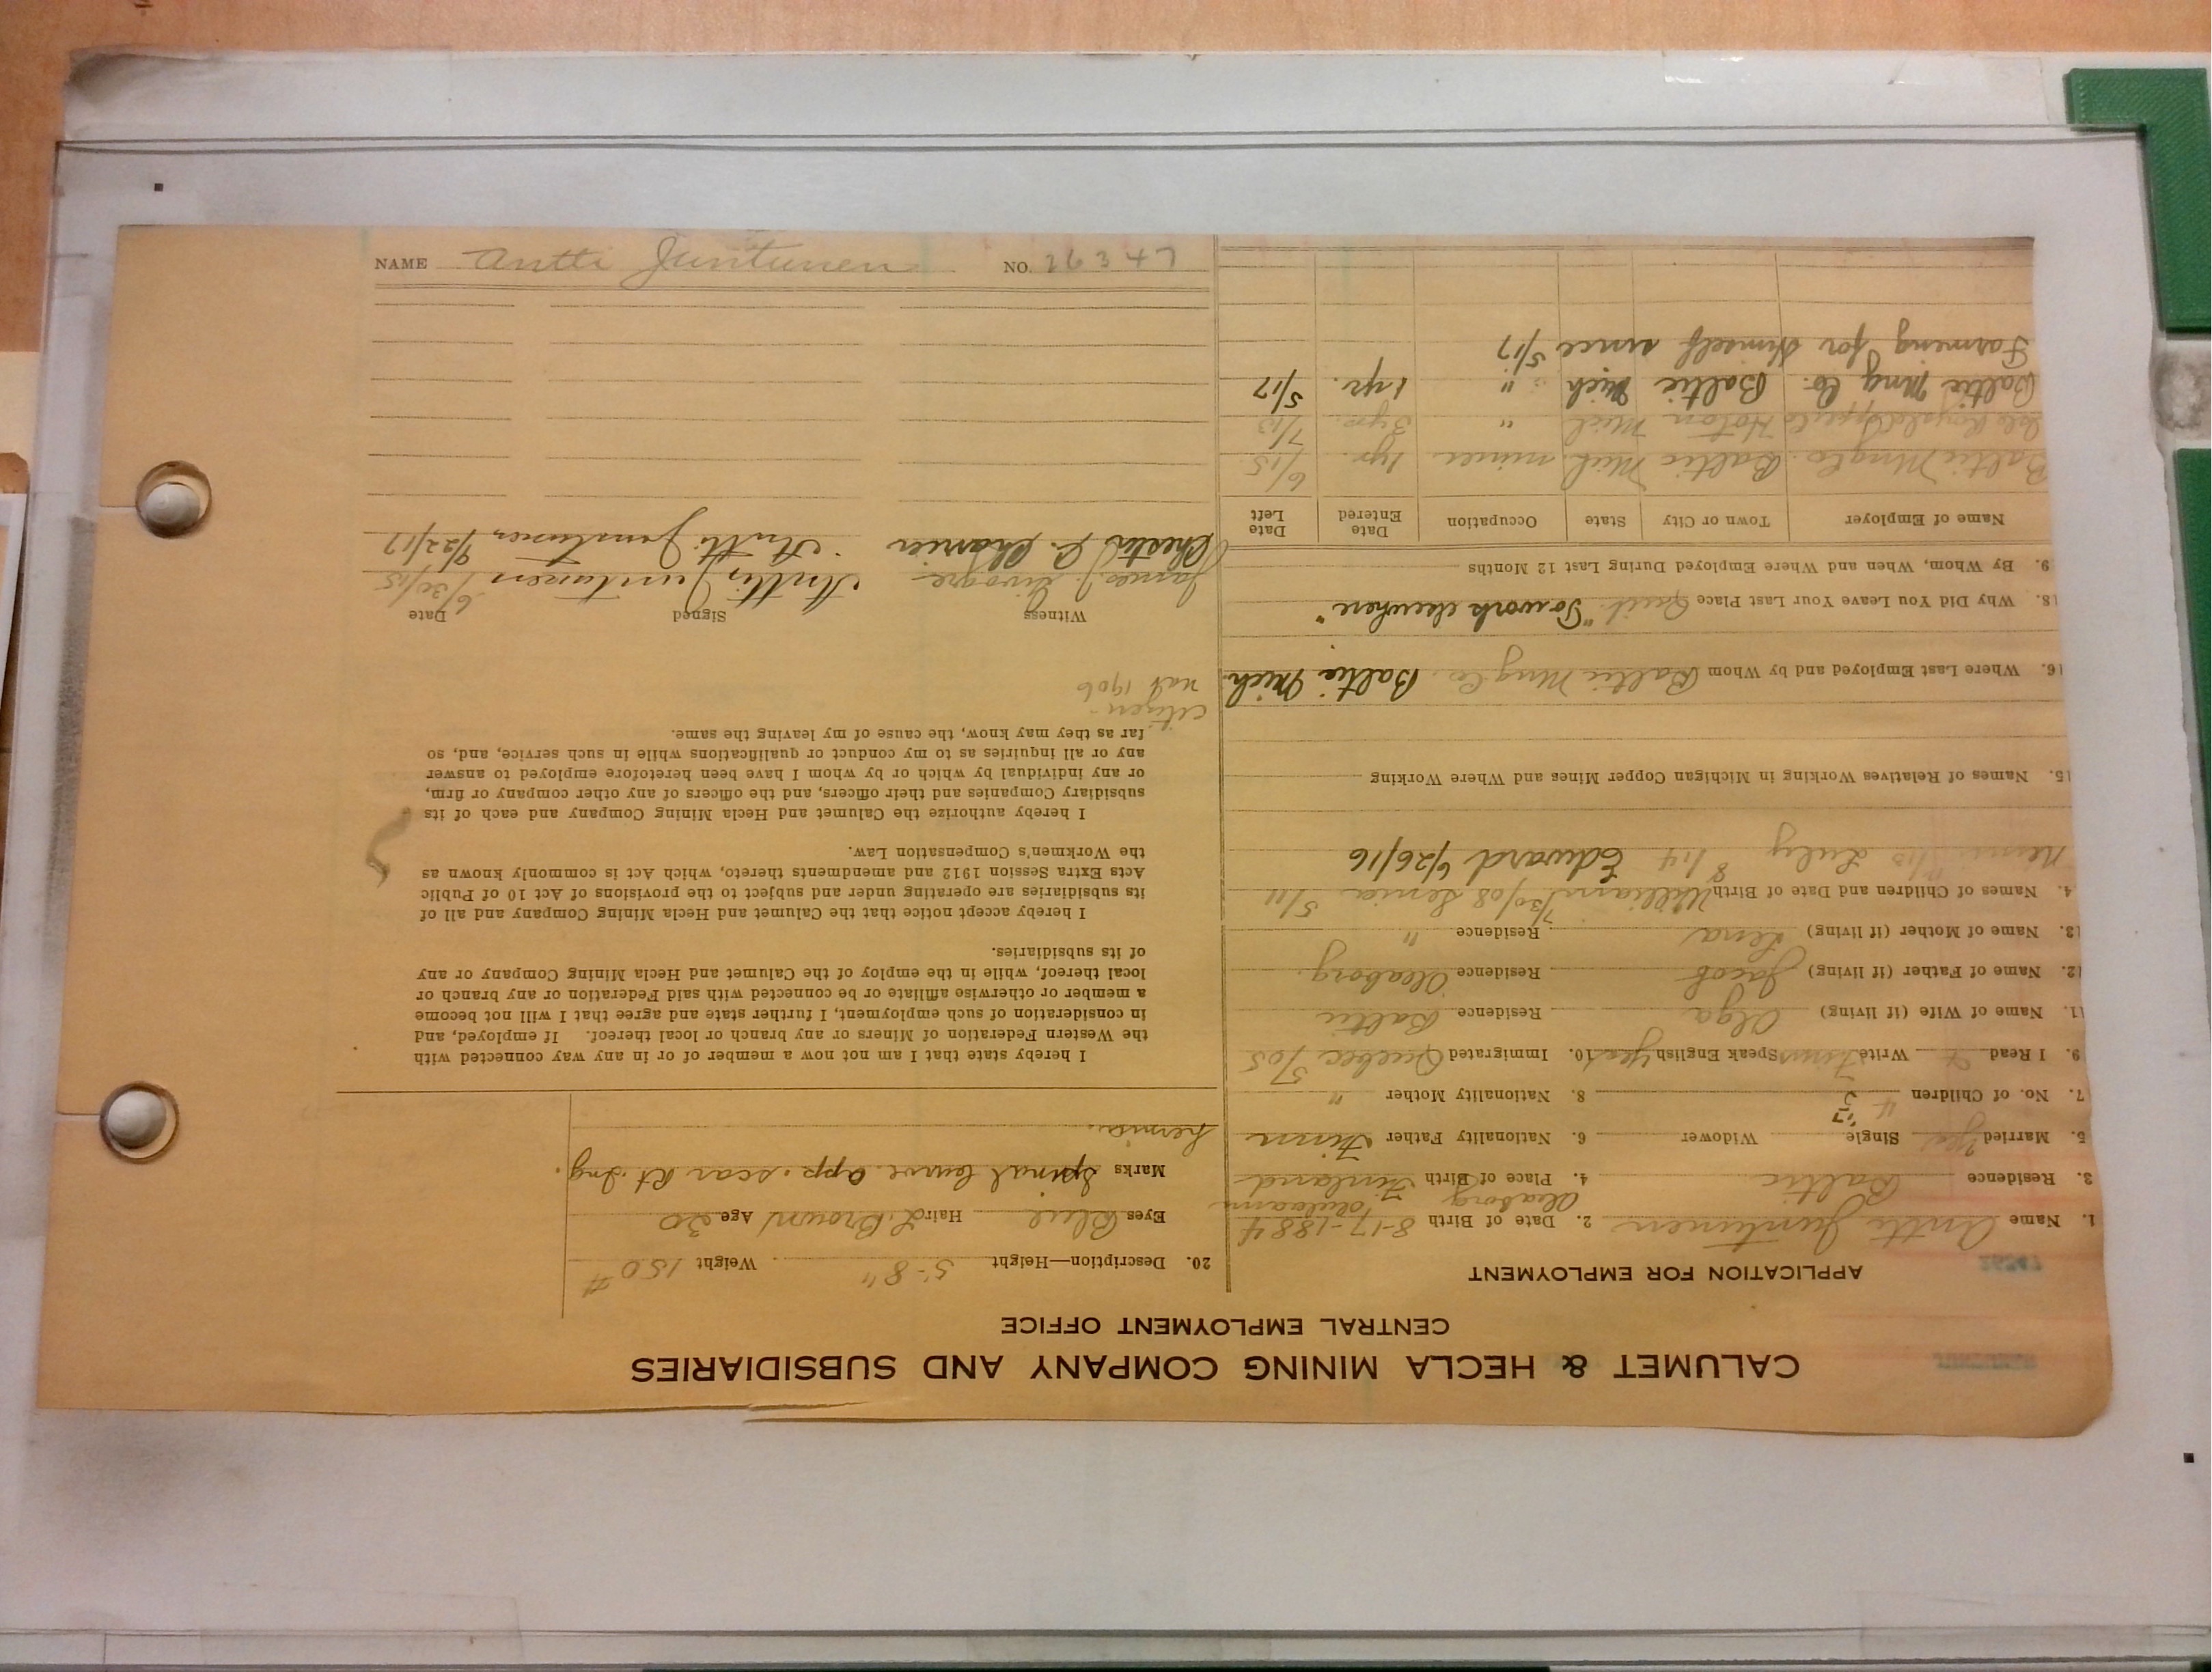 CALUMET & HECLA MINING COMPANY AND SUBSIDIARIES
CENTRAL EMPLOYMENT OFFICE
APPLICATION FOR EMPLOYMENT
1. Name Antti Juntunen 2. Date of Birth 8-17-1884
Oleaborg
3. Residence Baltic 4. Place of Birth Finland
5. Married Yes Single Widower 6. Nationality Father Finn
7. No. of Children 4 8. Nationality Mother "
9. I Read Write Finn Speak English Yes 10. Immigrated Quebec 5/05
11. Name of Wife (if living) Olga Residence Baltic
12. Name of Father (if living) Jacob Residence Oleaborg
13. Name of Mother (if living) Lena Residence "
14. Names of Children and Date of Birth William 7/30/08 5/11
8/14 Edward 6/26/16
15. Names of Relatives Working in Michigan Copper Mines and Where Working
16. Where Last Employed and by Whom Baltic Mng Co. Baltic Mich.
18. Why Did You Leave Your Last Place Quit. "To work elsewhere"
19. By Whom, When and Where Employed During Last 12 Months
Name of Employer Town or City State Occupation Date Entered Date Left
Baltic Mng Co. Baltic Mich. miner 1 yr. 6/15
Isle Royale Copper Co Hoton Mich " 3 yr. 7/13
Baltic Mng Co. Baltic Mich " 1 yr. 5/17
Farming for himself since 5/17
20. Description—Height 5-8" Weight 150 #
Eyes Blue Hair L. Brown Age 30
Marks Spinal curve app. scar Rt. Ing.
hernia.
I hereby state that I am not now a member of or in any way connected with
the Western Federation of Miners or any branch or local thereof. If employed, and
in consideration of such employment, I further state and agree that I will not become
a member or otherwise affiliate or be connected with said Federation or any branch or
local thereof, while in the employ of the Calumet and Hecla Mining Company or any
of its subsidiaries.
I hereby accept notice that the Calumet and Hecla Mining Company and all of
its subsidiaries are operating under and subject to the provisions of Act 10 of Public
Acts Extra Session 1912 and amendments thereto, which Act is commonly known as
the Workmen's Compensation Law.
I hereby authorize the Calumet and Hecla Mining Company and each of its
subsidiary Companies and their officers, and the officers of any other company or firm,
or any individual by which or by whom I have been heretofore employed to answer
any or all inquiries as to my conduct or qualifications while in such service, and, so
far as they may know, the cause of my leaving the same.
Citizen -
nat 1906
Witness Signed Date
James J. Antti Juntunen 6/30/15
Chester C. Antti Juntunen 9/22/17
NAME Antti Juntunen NO. 26347